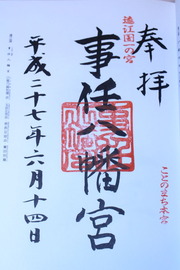 奉拝
遠江国一の宮
事任八幡宮
ことのまち本宮
平成二十七年六月十四日